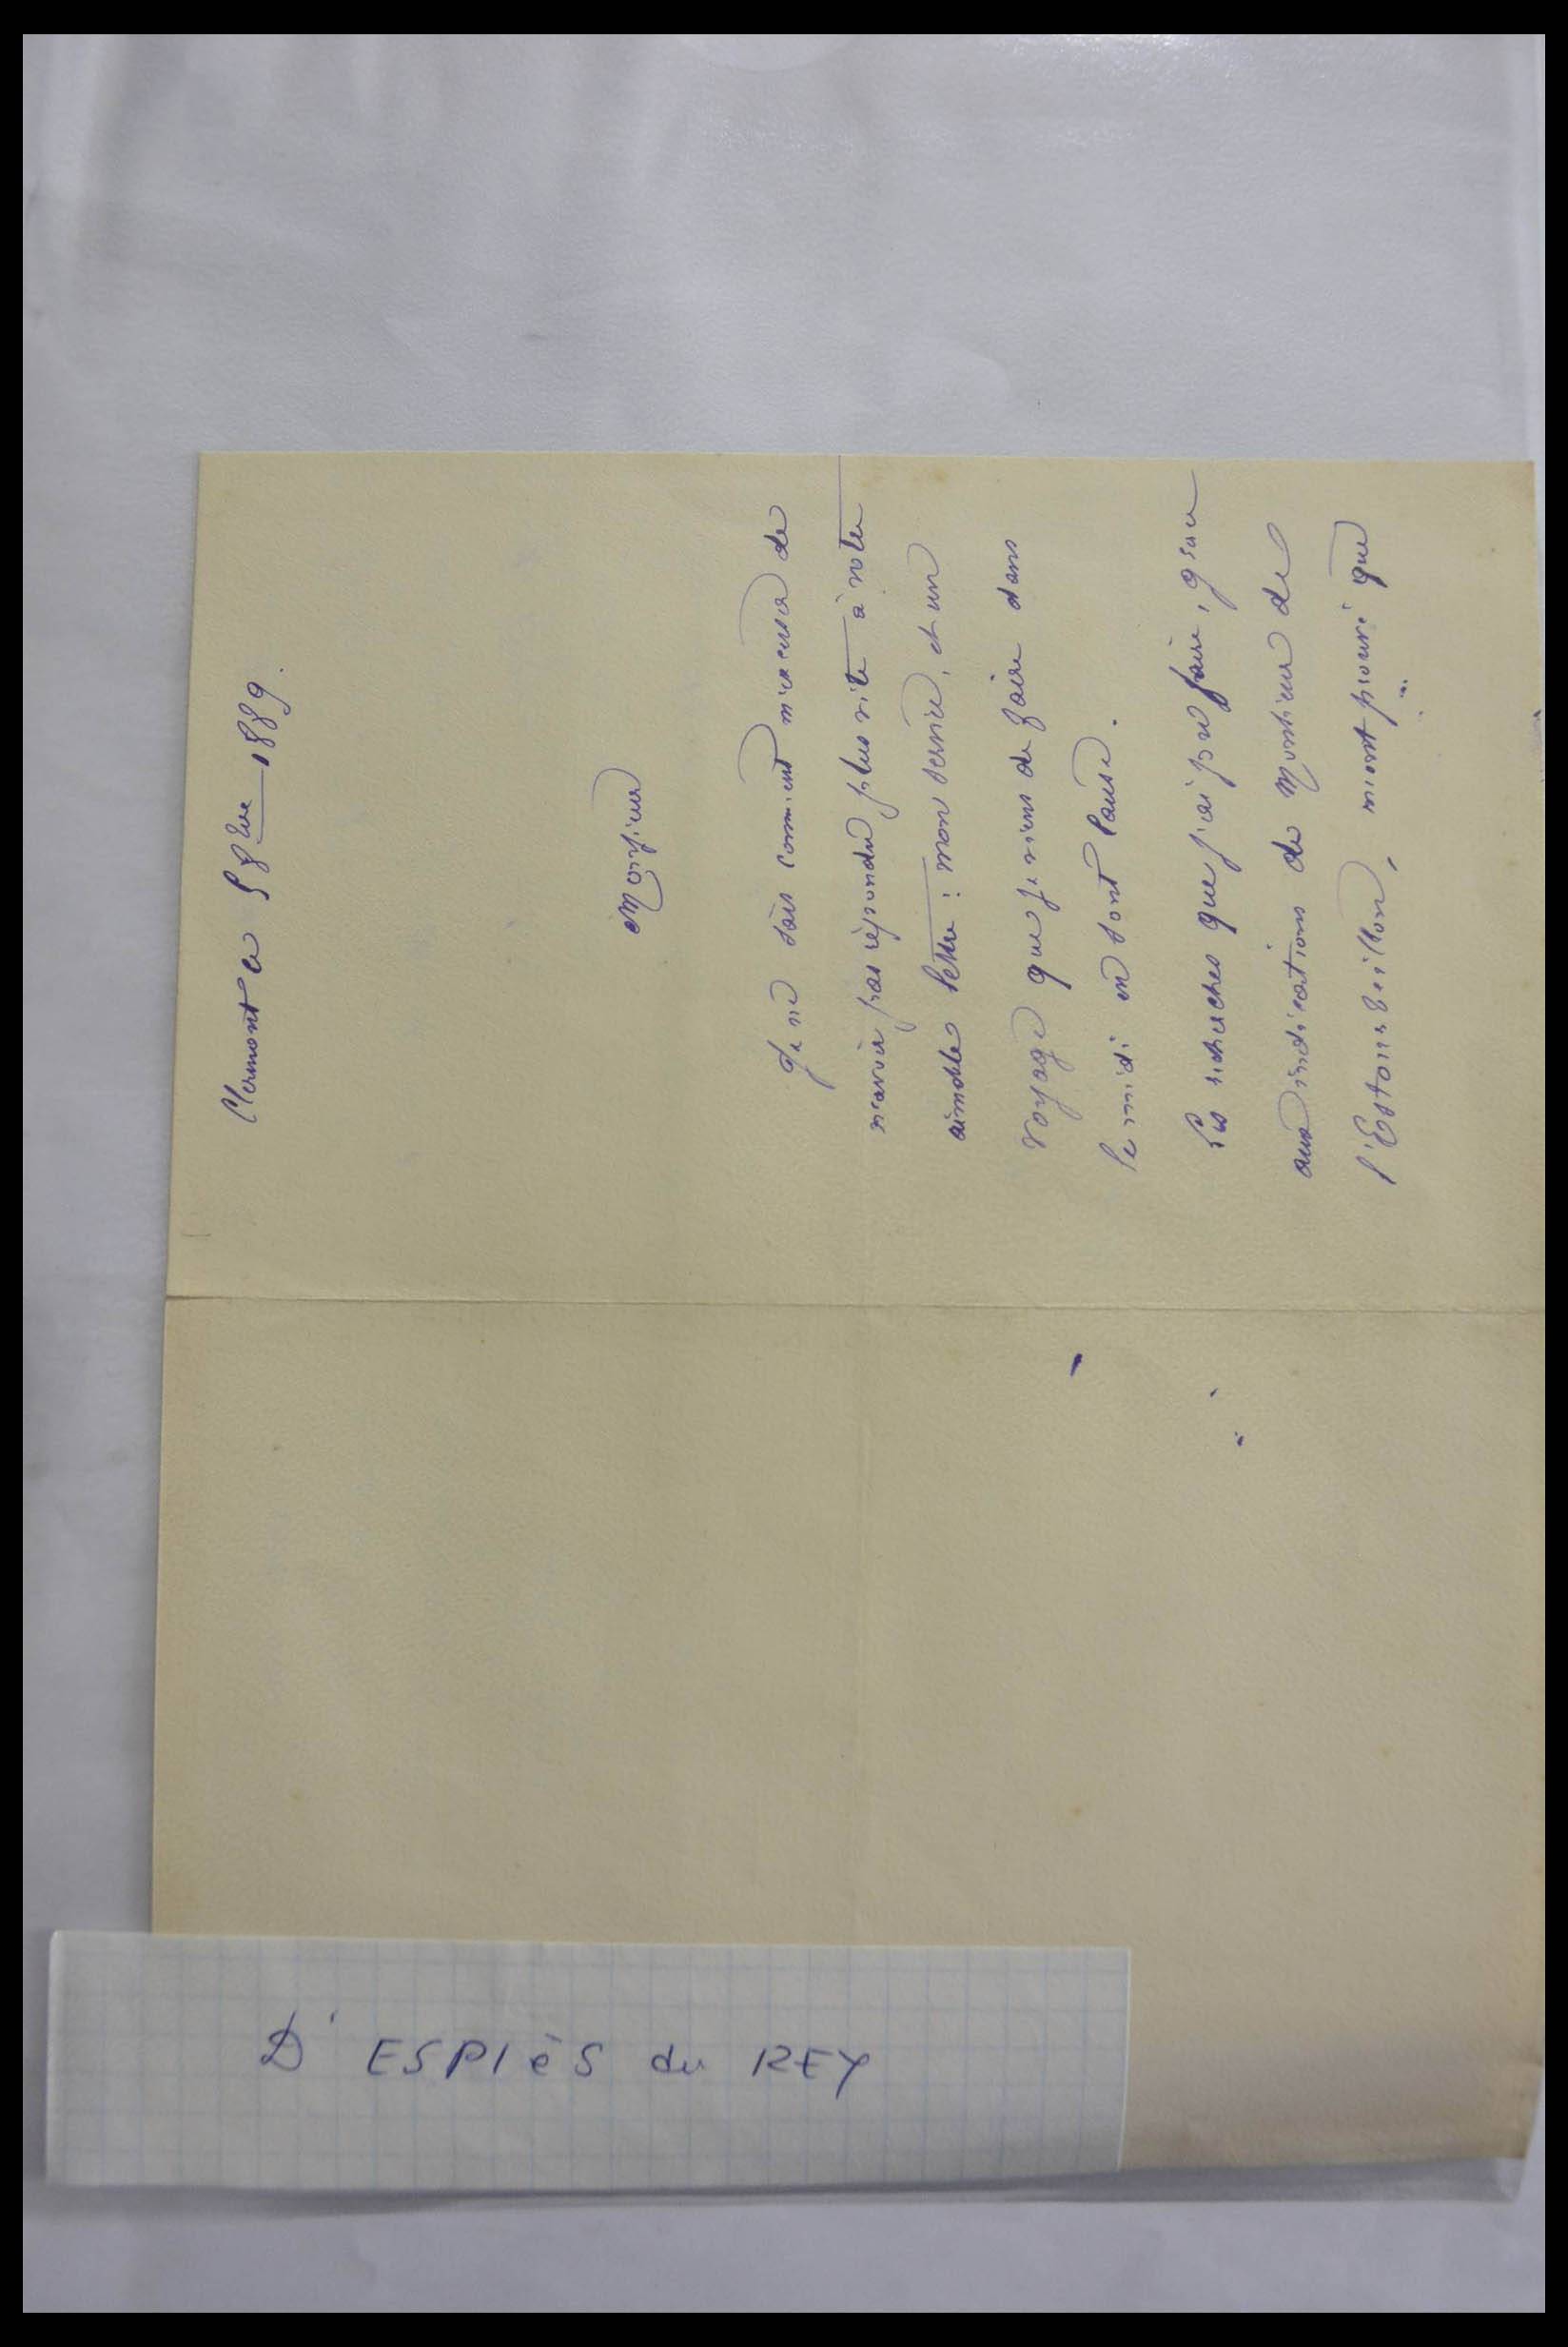 Clermont le 5 8bre 1889.
Monsieur
Je ne sais comment m'excuser de
n'avoir pas répondu plus vite à votre
aimable lettre : mon service, et un
voyage que je viens de faire dans
le midi en sont cause.
Les recherches que j'ai pu faire, grace
aux indications de Monsieur de
l'Estourbeillon, m'ont prouvé que
D' ESPIèS du REY